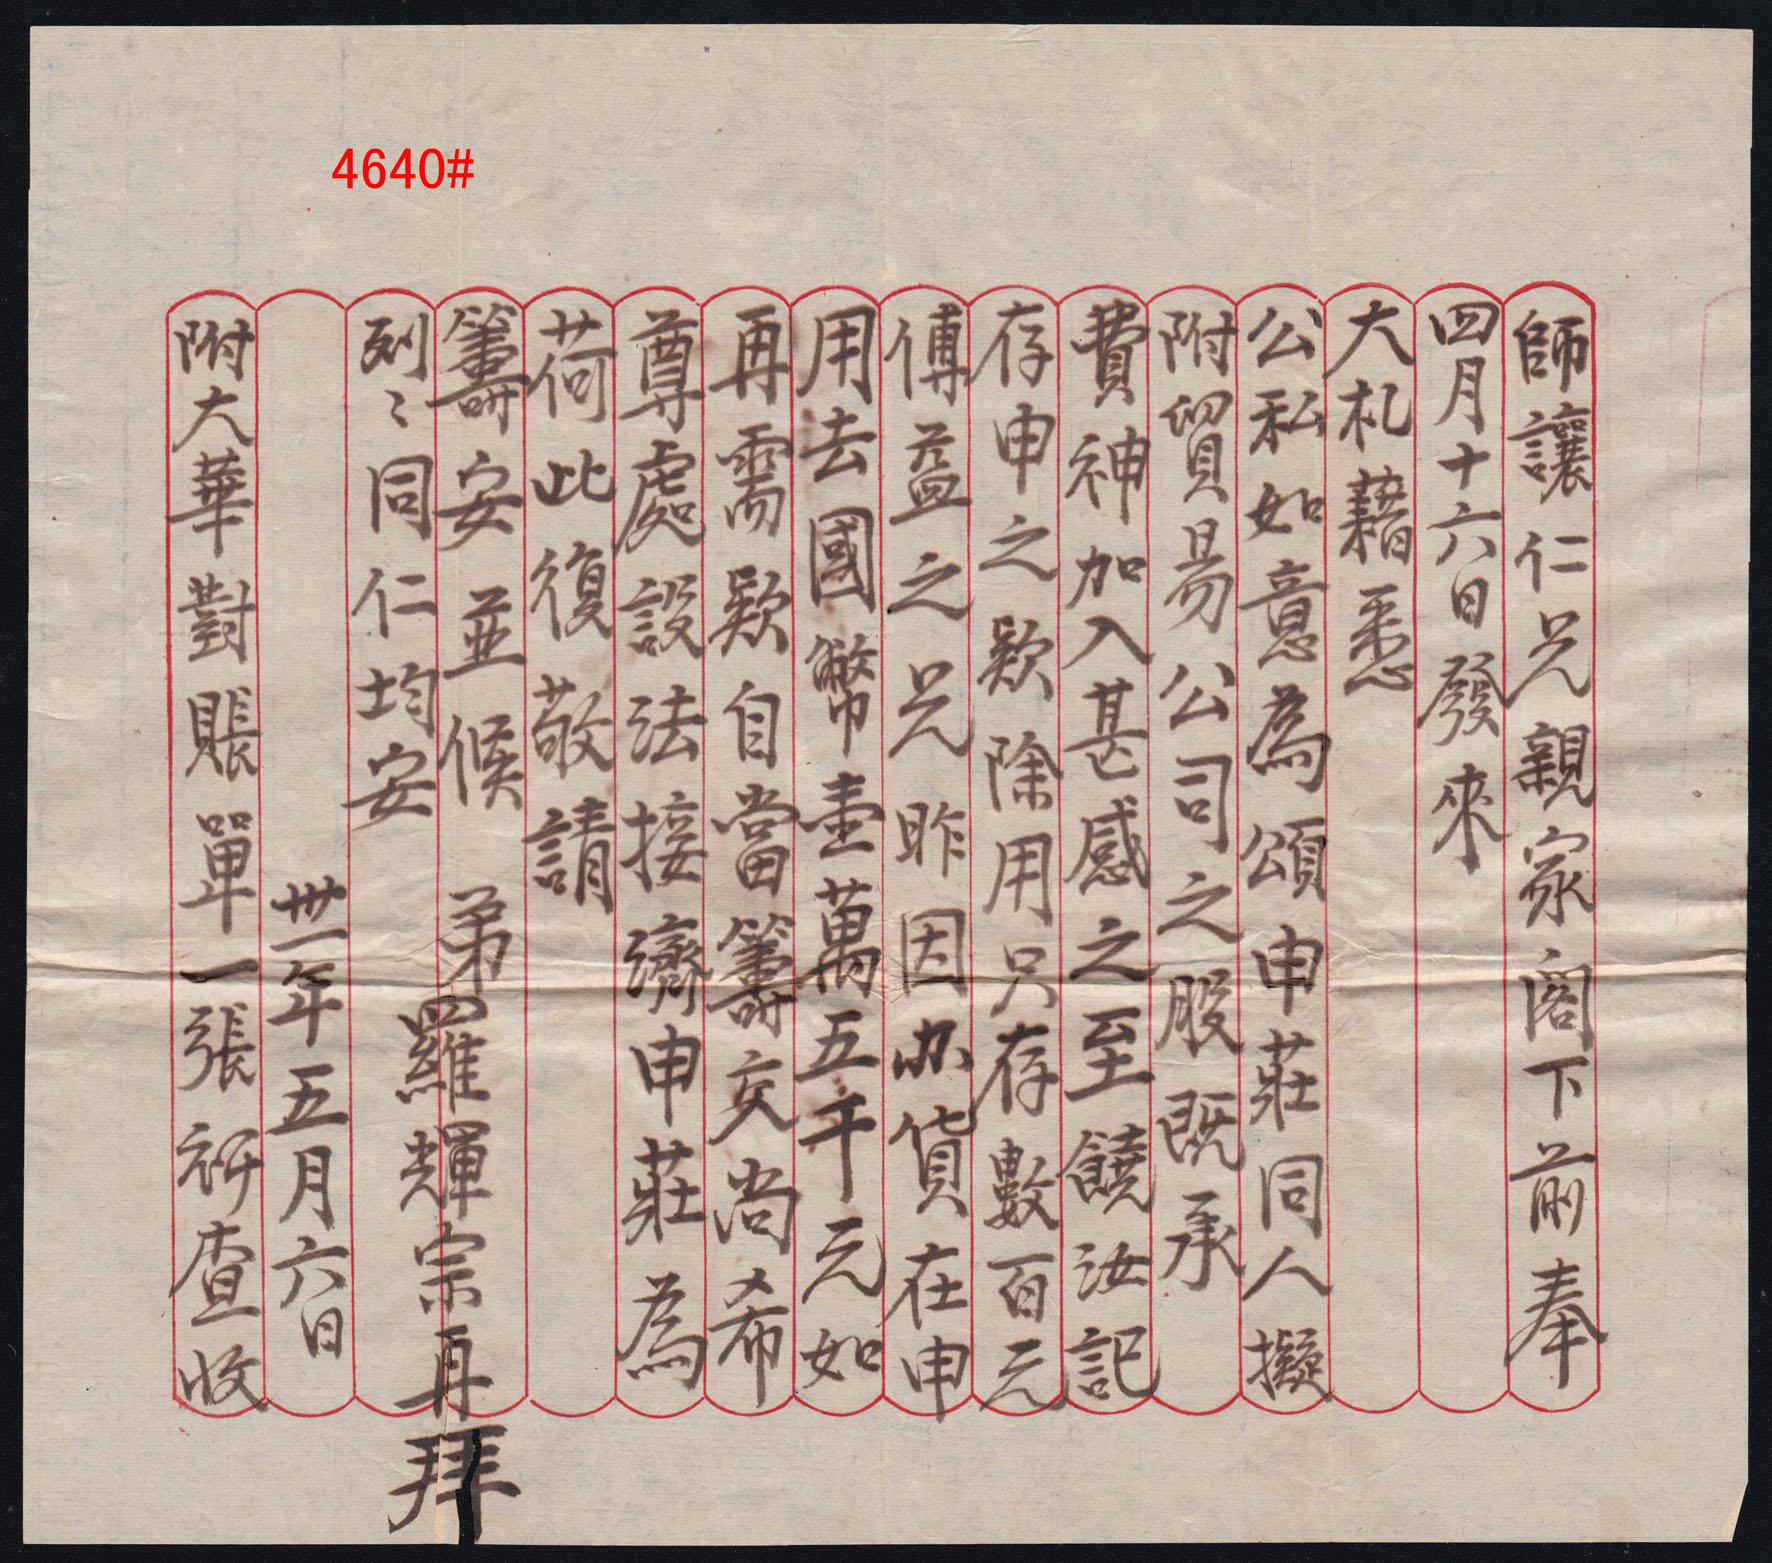 4640#
師讓仁兄親家閣下前奉
四月十六日發來
大札藉悉
公私如意為頌申莊同人擬
附貿易公司之股既承
費神加入甚感之至饒汝記
存申之欵除用只存數百元
傅益之兄昨因办貨在申
用去國幣壹萬五千元如
再需欵自當籌交尚希
尊處設法接濟申莊為
荷此復敬請
籌安並候
列〻同仁均安
弟羅輝宗再拜
卅一年五月六日
附大華對賬單一張祈查收